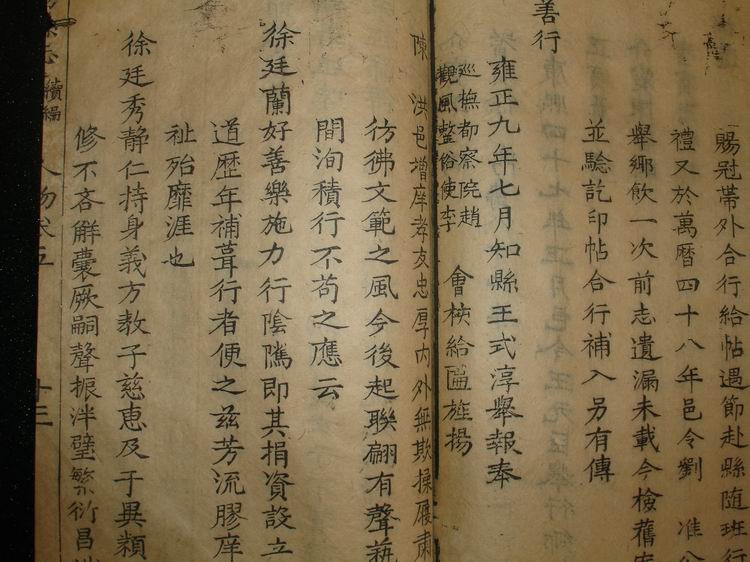 賜冠帶外合行給帖遇節赴縣随班行
禮又於萬曆四十八年邑令劉　准公
舉鄉飲一次前志遺漏未載今檢舊
並驗訖印帖合行補入另有傳
善行
雍正九年七月知縣王式淳舉報奉
廵撫都察院趙
觀風整俗使李
會核給匾旌揚
陳　洪邑增庠孝友忠厚内外無欺操履肅
彷彿文範之風今後起聯翩有聲
間洵積行不苟之應云
徐廷蘭好善樂施力行陰隲即其捐資設立
道歷年補葺行者便之兹芳流膠庠
祉殆靡涯也
徐廷秀静仁持身義方教子慈惠及于異類
修不吝觧囊厥嗣聲振泮璧繁衍昌
續編
人物卷五
十三